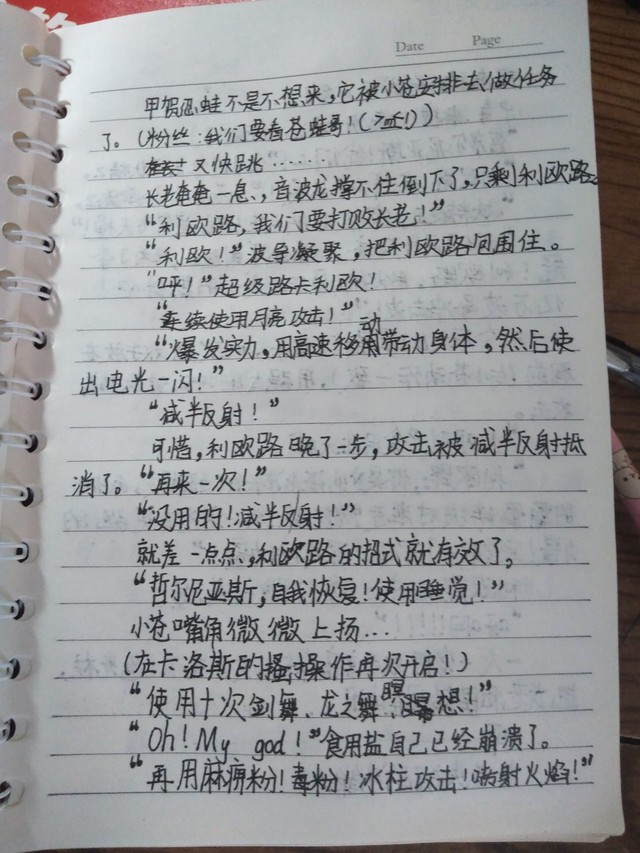 Date
Page
甲贺忍蛙不是不想来,它被小苍安排去做任务
了。(粉丝:我们要看苍蛙哥!(>m<!))
又快跳……
长老奄奄一息、,音波龙撑不住倒下了,只剩利欧路。
“利欧路,我们要打败长老!”
“利欧!”波导凝聚,把利欧路包围住。
“呼!”超级路卡利欧!
“连续使用月亮攻击!”
“爆发实力,用高速移动带动身体,然后使
出电光一闪!”
“减半反射!”
可惜,利欧路晚了一步,攻击被减半反射抵
消了。“再来一次!”
“没用的!减半反射!”
就差一点点,利欧路的招式就有效了。
“哲尔尼亚斯,自我恢复!使用睡觉!”
小苍嘴角微微上扬…
(在卡洛斯的搔操作再次开启!)
“使用十次剑舞、龙之舞、瞑想!”
“Oh!My god!”食用盐自己已经崩溃了。
“再用麻痹粉!毒粉!冰柱攻击!喷射火焰!”